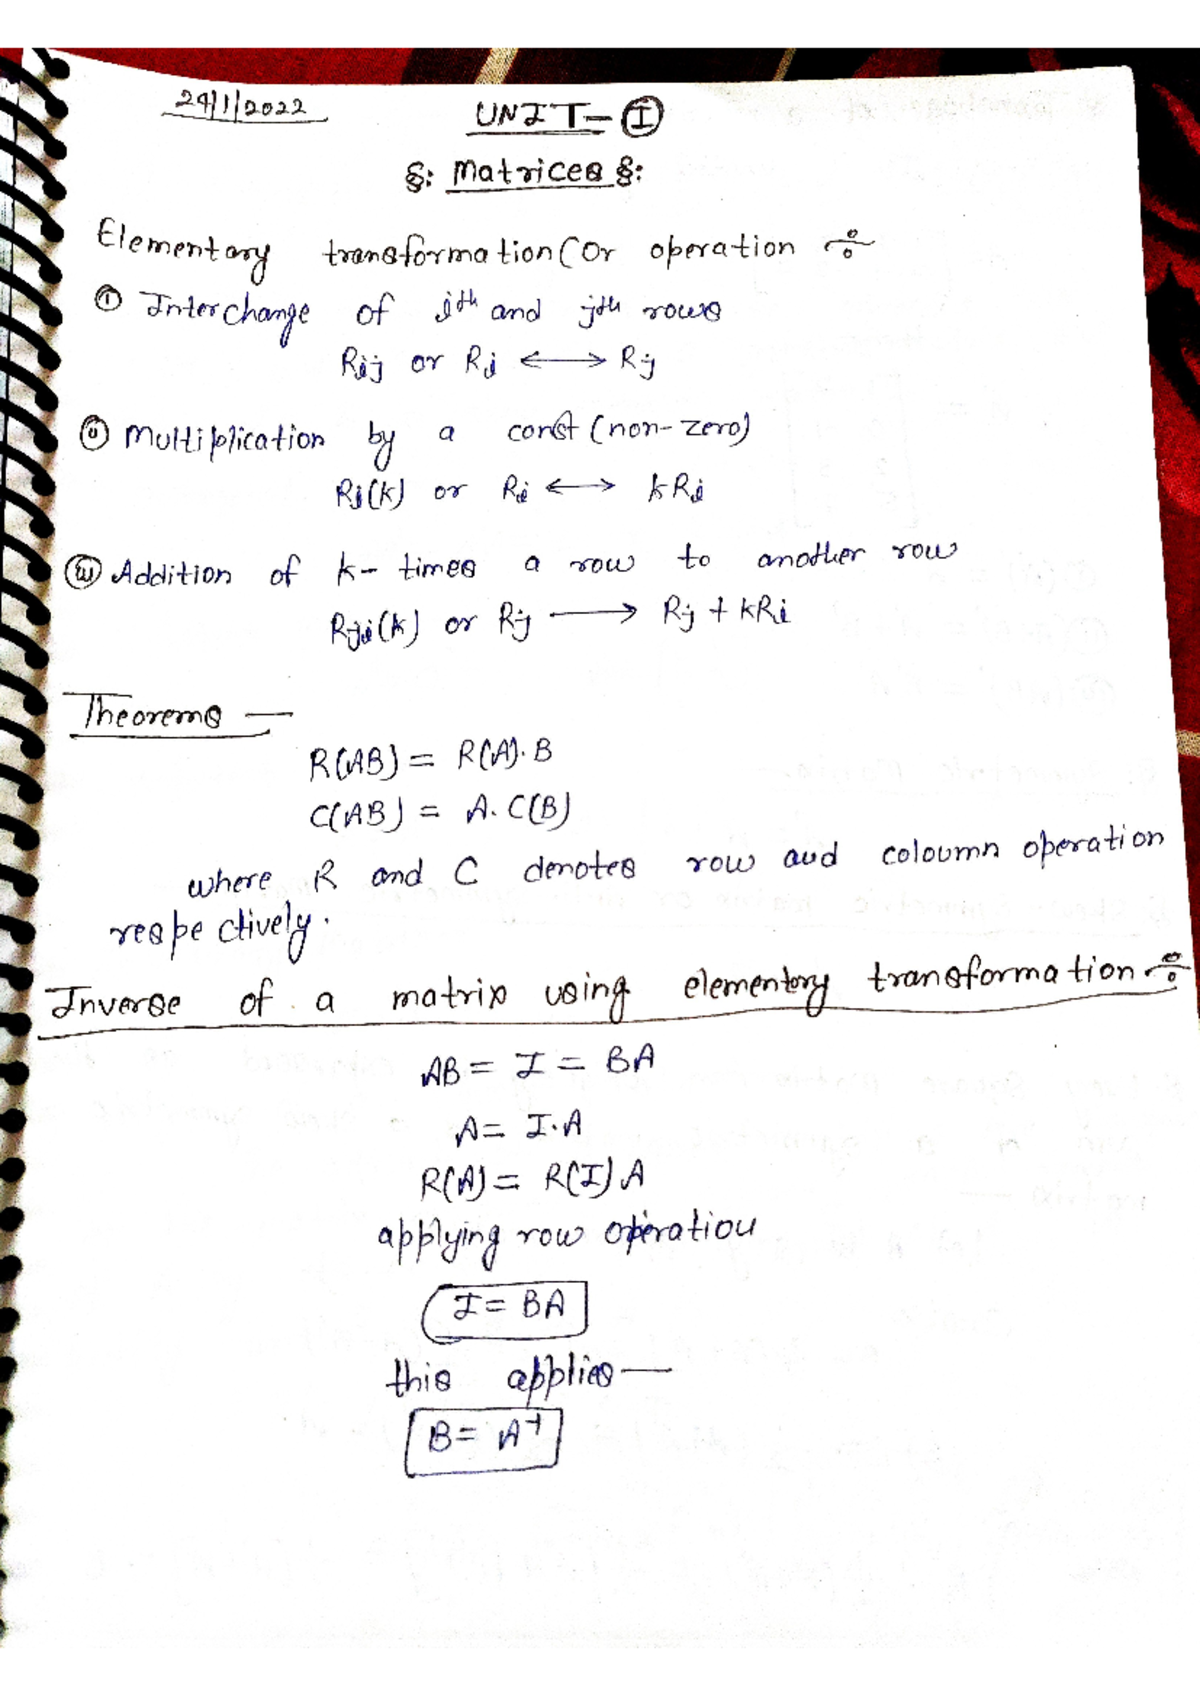 24/1/2022
UNIT- I
§: Matrices §:
Elementary transformation (or operation ÷
(i) Interchange of ith and jth rows
Rij or Ri ⟷ Rj
(ii) Multiplication by a const (non-zero)
Ri(k) or Ri ⟷ kRi
(iii) Addition of k- times a row to another row
Rji(k) or Rj ⟶ Rj + kRi
Theorems —
R(AB) = R(A). B
C(AB) = A. C(B)
where R and C denotes row and coloumn operation
respectively.
Inverse of a matrix using elementry transformation ÷
AB = I = BA
A = I.A
R(A) = R(I) A
applying row operation
I = BA
this applies —
B = A⁻¹